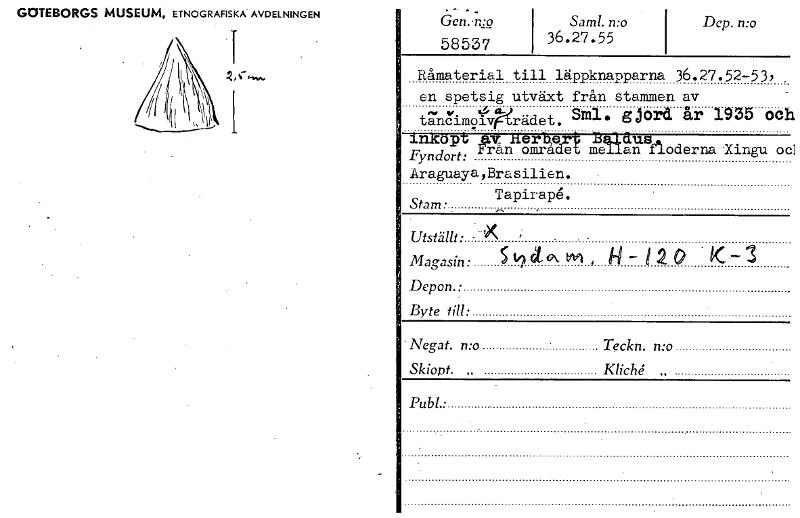 GÖTEBORGS MUSEUM, ETNOGRAFISKA AVDELNINGEN
2,5 cm
Gen. n:o
58537
Saml. n:o
36.27.55
Dep. n:o
Råmaterial till läppknapparna 36.27.52-53,
en spetsig utväxt från stammen av
trädet. Sml. gjord år 1935 och
inköpt av Herbert Baldus.
Fyndort: Från området mellan floderna Xingu oc
Araguaya,Brasilien.
Stam: Tapirapé.
Utställt: X
Magasin: Sydam. H-120 K-3
Depon.:
Byte till:
Negat. n:o Teckn. n:o
Skiopt. „ Kliché „
Publ.: